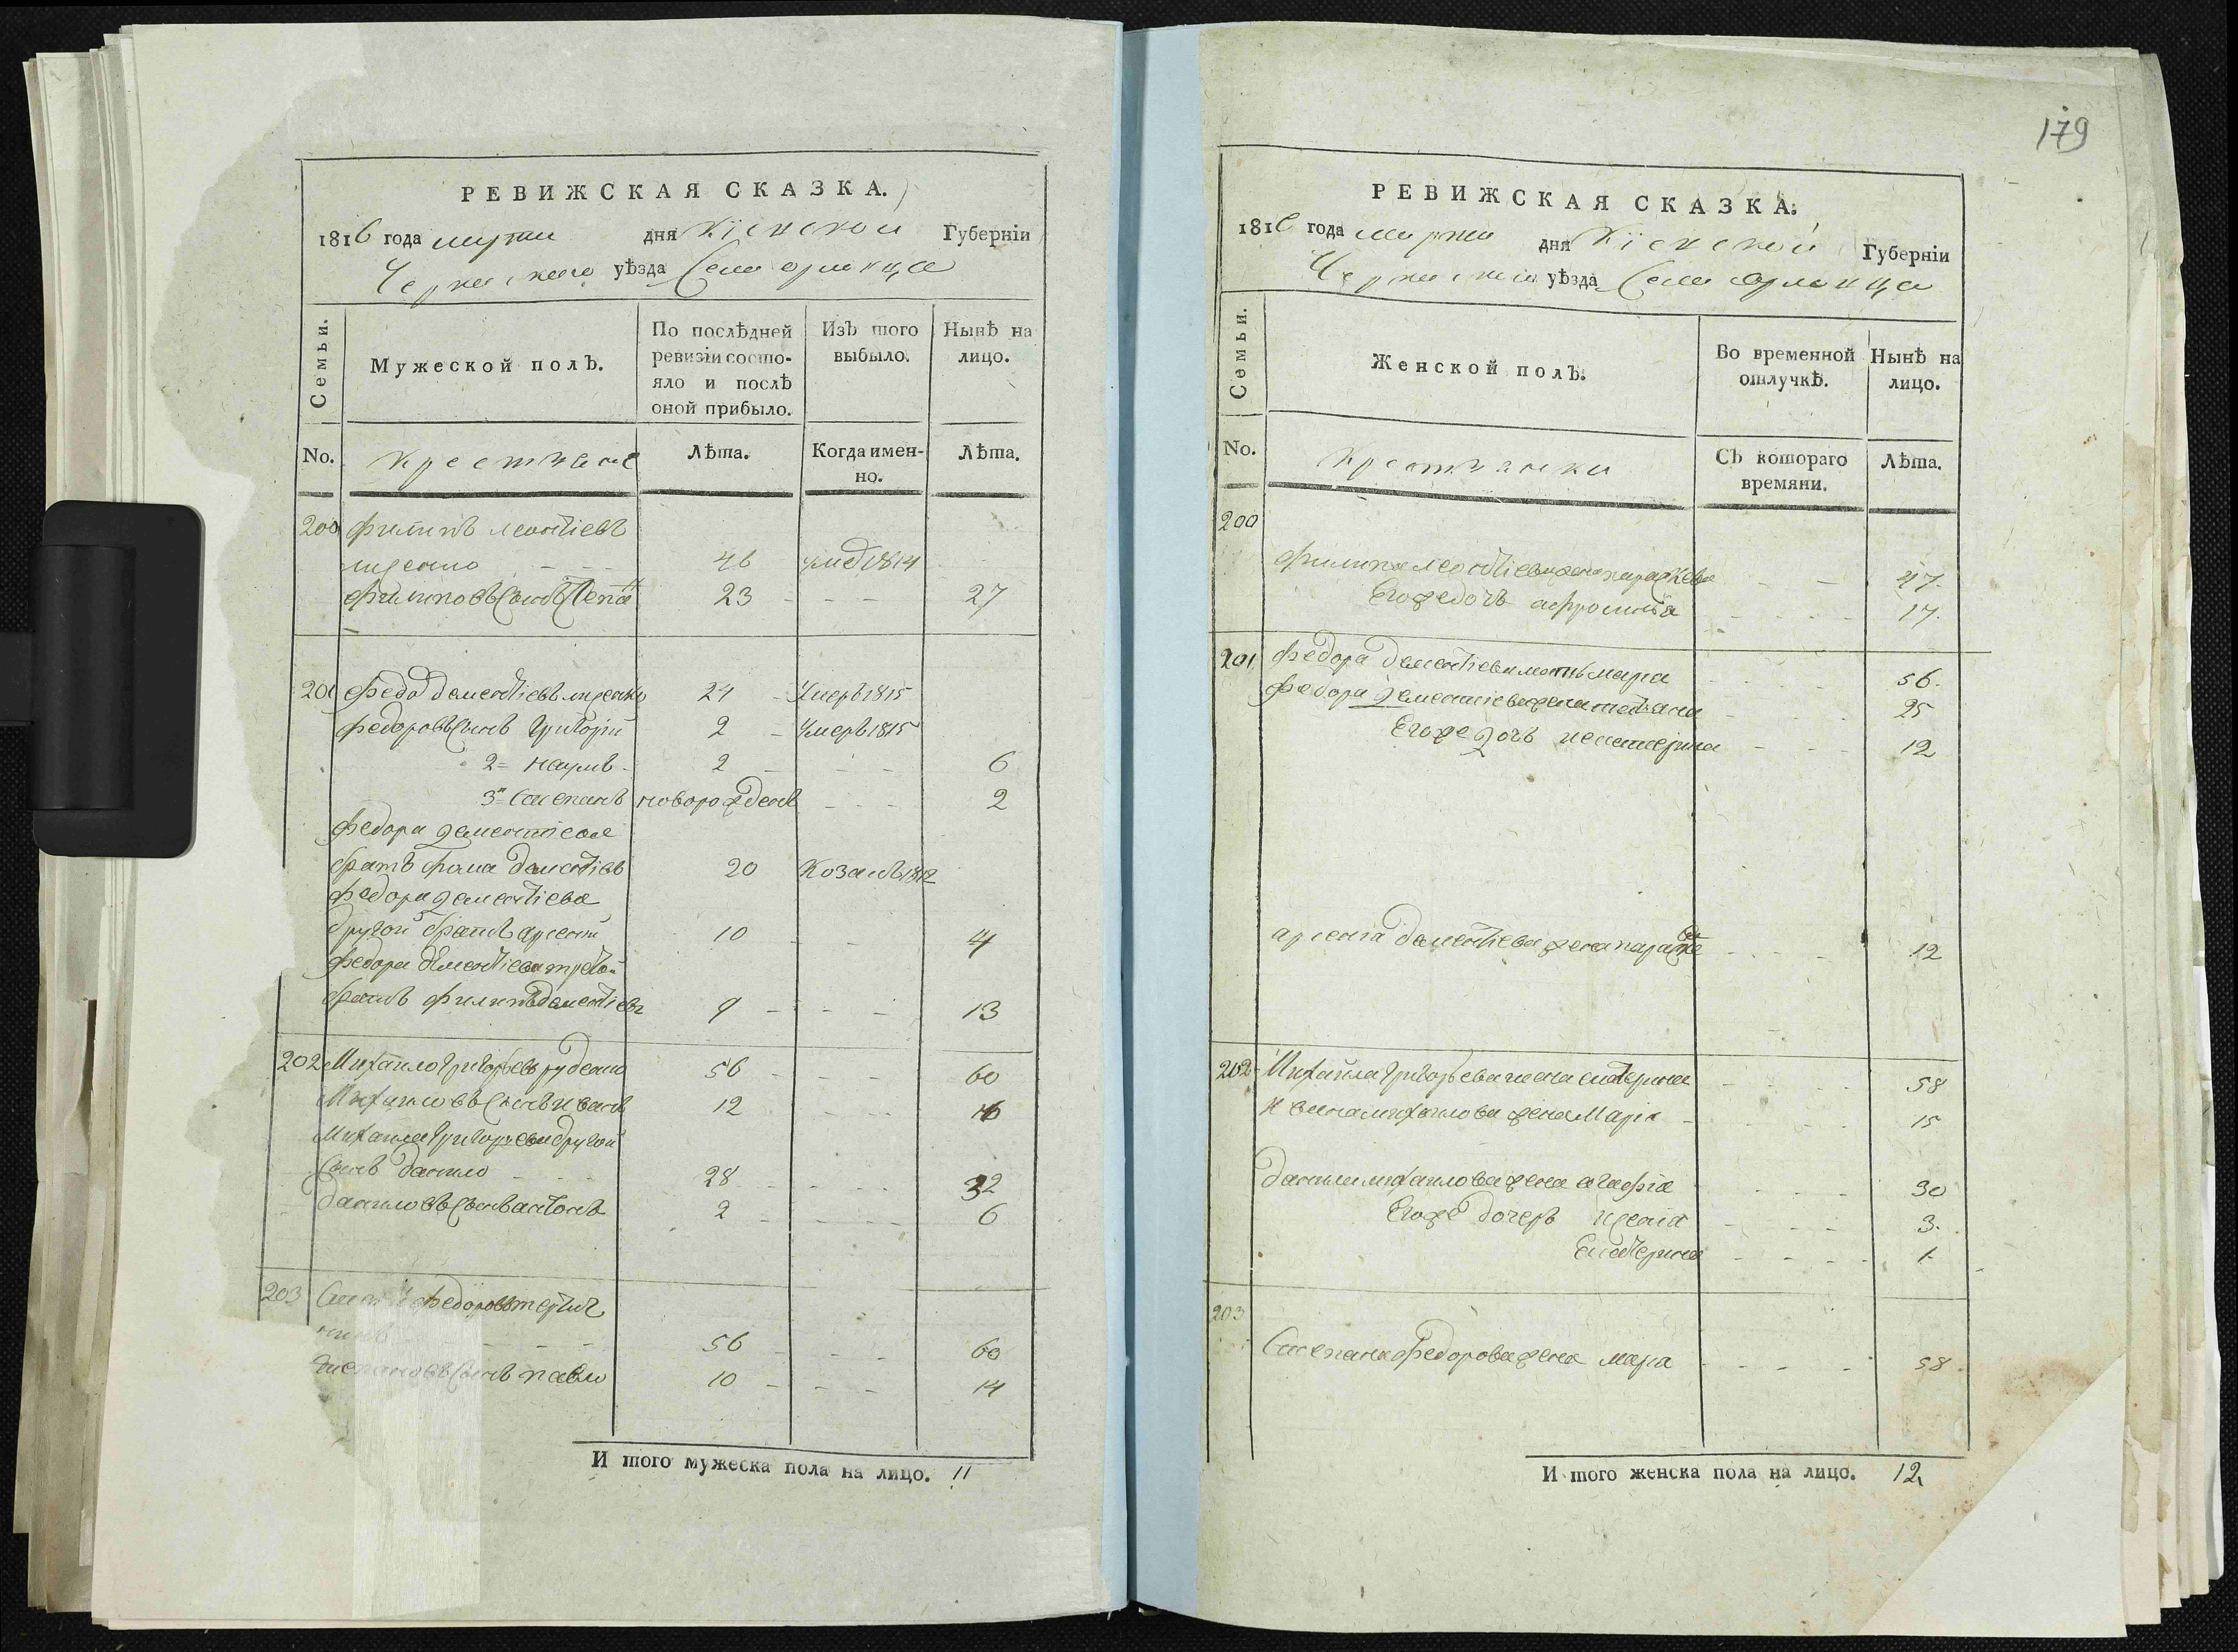 РЕВИЖСКАЯ СКАЗКА.
1816 года марта дня Кіевской Губерніи
Черкаского уѣзда Села Орловца
Семьи.
Мужеской полъ.
По послѣдней ревизіи состояло и послѣ оной прибыло.
Изъ того выбыло.
Нынѣ на лицо.
No.
Крестьяне
Лѣта.
Когда именно.
Лѣта.
200 Филипъ Леонтіевъ
46 1814
Филиповъ Сынъ 23 - - - 27
201 Федо Дементіевъ 24 - Умеръ 1815
Федоровъ Сынъ Григорій 2 - Умеръ 1815
2- Наумъ - 2 - - - 6
3й Степанъ новорожденъ - - - 2
Федора Дементіева
братъ Фома Дементіевъ 20 1812
Федора Дементіева
другой братъ Арсентій 10 - - 14
Федора Дементіева третой
братъ Филипъ Дементіевъ 9 - - - 13
202 Михайло Григорьевъ Руденко 56 - - - 60
Михайловъ Сынъ Иванъ 12 - - - 16
Михайла Григорьева другой
Сынъ Данило 28 - - - 32
Даниловъ Сынъ Антонъ 2 - - - 6
203 Федоровъ
- - - 56 - - - 60
Степановъ Сынъ Павло 10 - - - 14
И того мужеска пола на лицо. 11
179
РЕВИЖСКАЯ СКАЗКА.
1816 года марта дня Кіевской Губерніи
Черкаского уѣзда Села Орловца
Семьи.
Женской полъ.
Во временной отлучкѣ.
Нынѣ на лицо.
No.
Крестьянки
Съ котораго времяни.
Лѣта.
200
Филипа Леонтіева жена Параскева - - 47.
Егожъ дочъ Афросинія - - - - 17.
201 Федора Дементіева мать Марія - - - - 56.
Федора Дементіева жена Татьяна - - 25
Егоже дочъ Катерина - - - 12
Арсентія Дементіева жена Параске - - - - 12
202 Михайла Григорьева жена Екатерина - - - - 58
Ивана Михайлова жена Марія - - - - 15
Данила Михайлова жена Агафія - - - - 30
Егоже дочеръ Ксенія - - - - 3.
Екатерина - - - - 1.
203
Степана Федорова жена Марія - - - - 58.
И того женска пола на лицо. 12